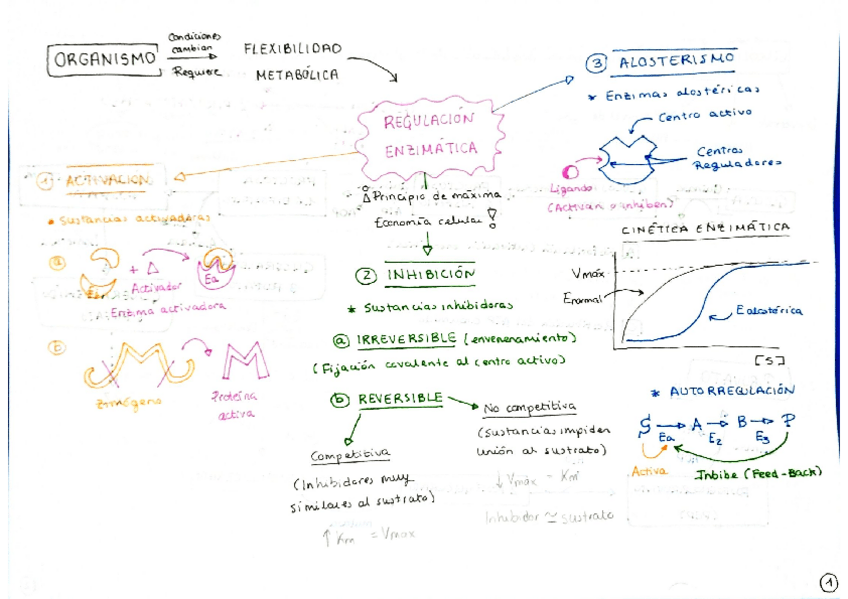 ORGANISMO
Condiciones
cambian
Requiere
FLEXIBILIDAD
METABÓLICA
REGULACIÓN
ENZIMÁTICA
Principio de máxima
Economía celular!
1 ACTIVACIÓN
• Sustancias activadoras
a
+
Activador
Ea
Enzima activadora
b
Zimógeno
Proteína
activa
2 INHIBICIÓN
* Sustancias inhibidoras
a IRREVERSIBLE (envenenamiento)
(Fijación covalente al centro activo)
b REVERSIBLE
Competitiva
(Inhibidores muy
similares al sustrato)
↑ Km = Vmax
No competitiva
(Sustancias impiden
unión al sustrato)
↓ Vmáx = Km
Inhibidor ≃ sustrato
3 ALOSTERISMO
* Enzimas alostéricas
Centro activo
Centros
Reguladores
Ligando
(Activan o inhiben)
CINÉTICA ENZIMÁTICA
Vmáx
Enormal
E alostérica
[S]
* AUTORREGULACIÓN
S → A → B → P
Ea E2 E3
Activa
Inhibe (Feed-Back)
1